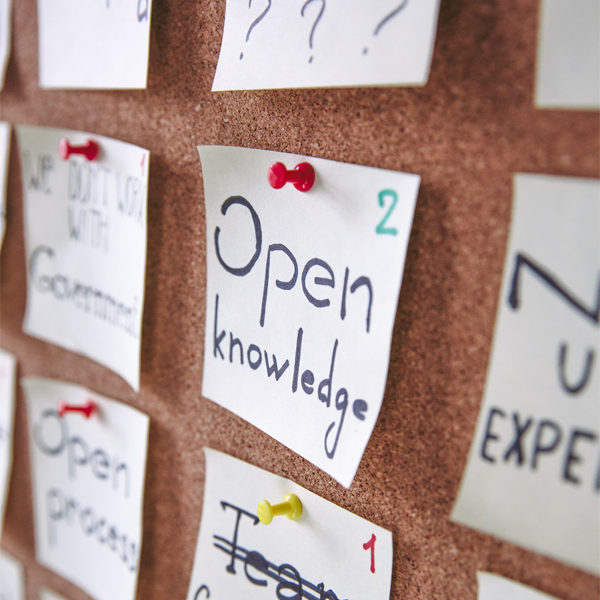 ? ? ?
We DON'T WORK
WITH
Government
2
Open
knowledge
Open
process
1
Team